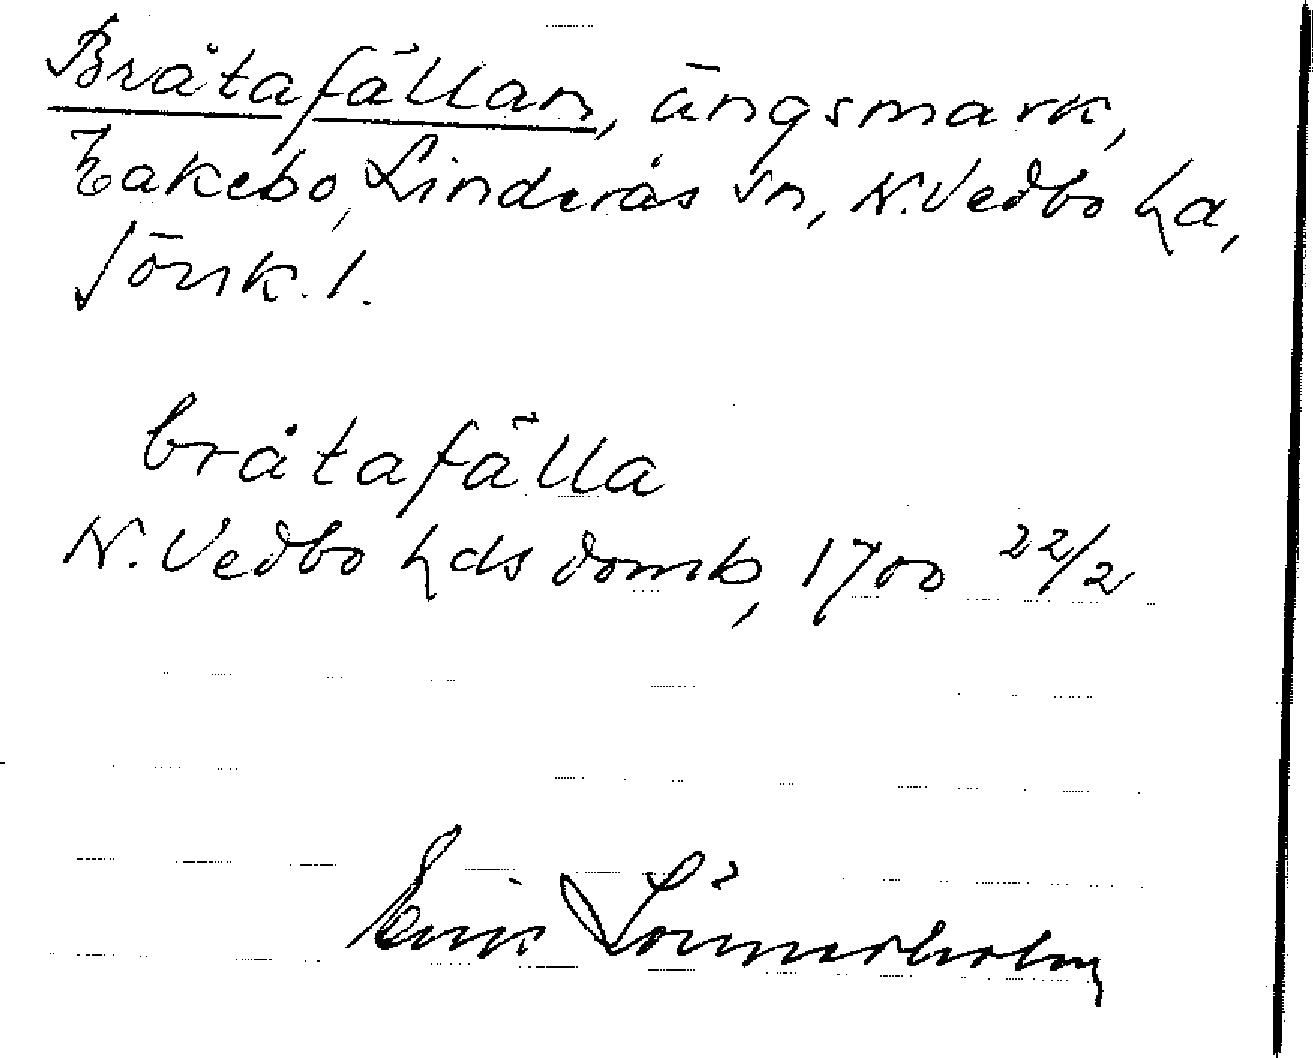 Bråtafällan, ängsmark,
Takebo, Linderås sn, N. Vedbo hd,
Jönk. l.
bråtafälla
N. Vedbo hds domb, 1700 22/2
Erik Lönnerholm